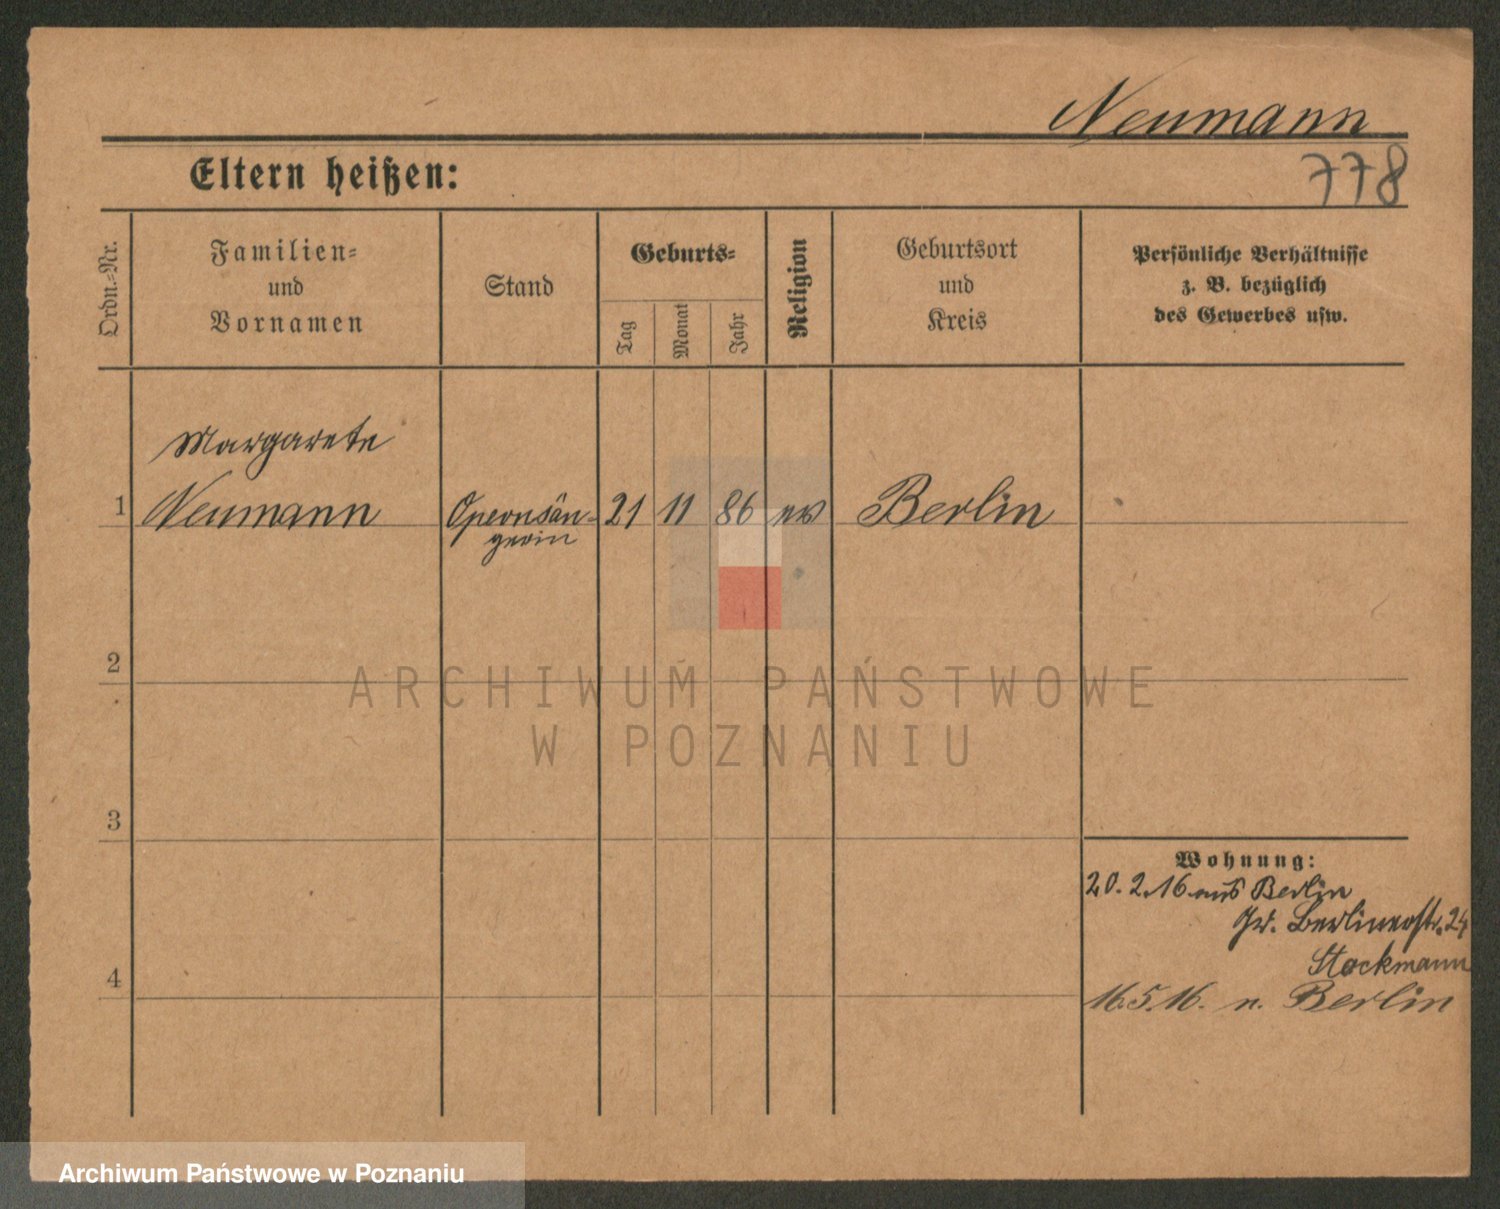 Neumann
Eltern heißen:
778
Ordn.-Nr.
Familien-
und
Vornamen
Stand
Geburts-
Tag
Monat
Jahr
Religion
Geburtsort
und
Kreis
Persönliche Verhältnisse
z. B. bezüglich
des Gewerbes usw.
Margarete
1 Neumann Opernsän- 21 11 86 ev Berlin
gerin
2
ARCHIWUM PAŃSTWOWE
W POZNANIU
3
Wohnung:
20.2.16 aus Berlin
Gr. Berlinerstr. 24
Stockmann
4
16.5.16. n. Berlin
Archiwum Państwowe w Poznaniu